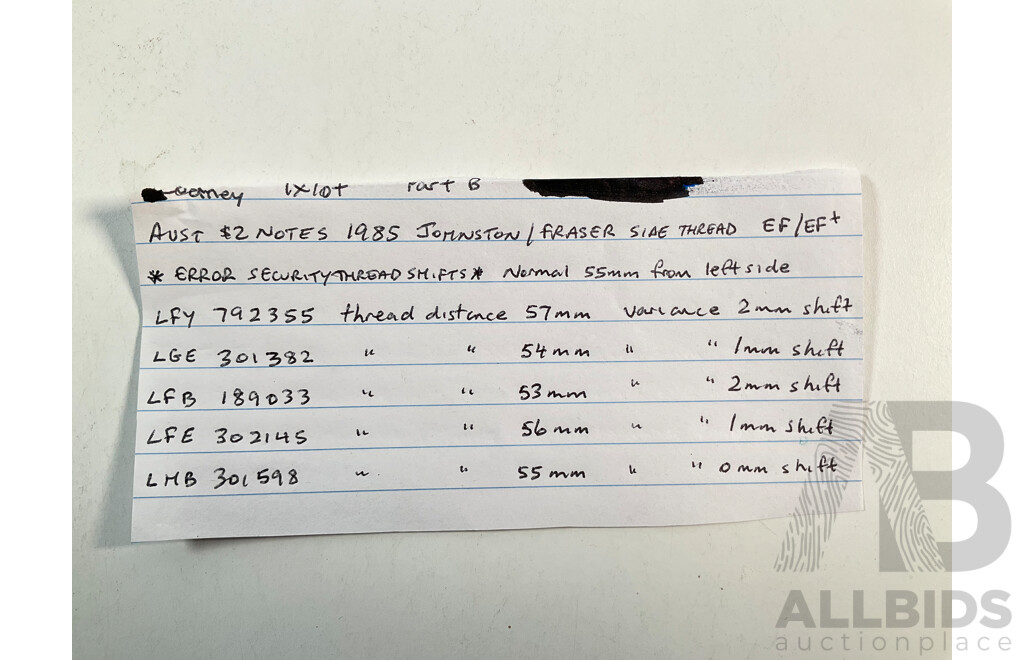 1x10+ Part B
AUST $2 NOTES 1985 JOHNSTON/FRASER SIDE THREAD EF/EF+
* ERROR SECURITY THREAD SHIFTS * Normal 55mm from left side
LFY 792355 thread distance 57mm variance 2mm shift
LGE 301382 " " 54mm " " 1mm shift
LFB 189033 " " 53mm " " 2mm shift
LFE 302145 " " 56mm " " 1mm shift
LHB 301598 " " 55mm " " 0mm shift
AB
ALLBIDS
auctionplace